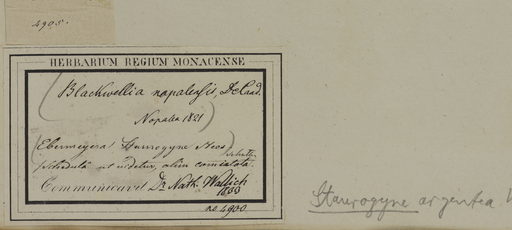 4905.
HERBARIUM REGIUM MONACENSE
(Blackwellia napalensis, DeCand.
Napalia 1821)
(Ebermayera Staurogyne Nees)
ut videtur, olim
Communicavit Dr. Nath. Wallich
1833
no. 4900
Staurogyne argentea